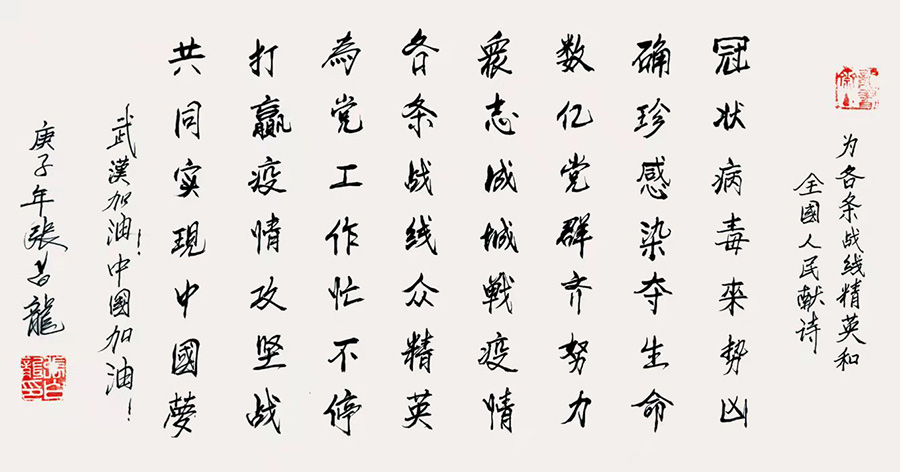 为各条战线精英和
全國人民献诗
冠状病毒来势凶
确珍感染夺生命
数亿党群齐努力
衆志成城戰疫情
各条战线众精英
為党工作忙不停
打贏疫情攻坚战
共同实現中國夢
武漢加油！中國加油！
庚子年張龍